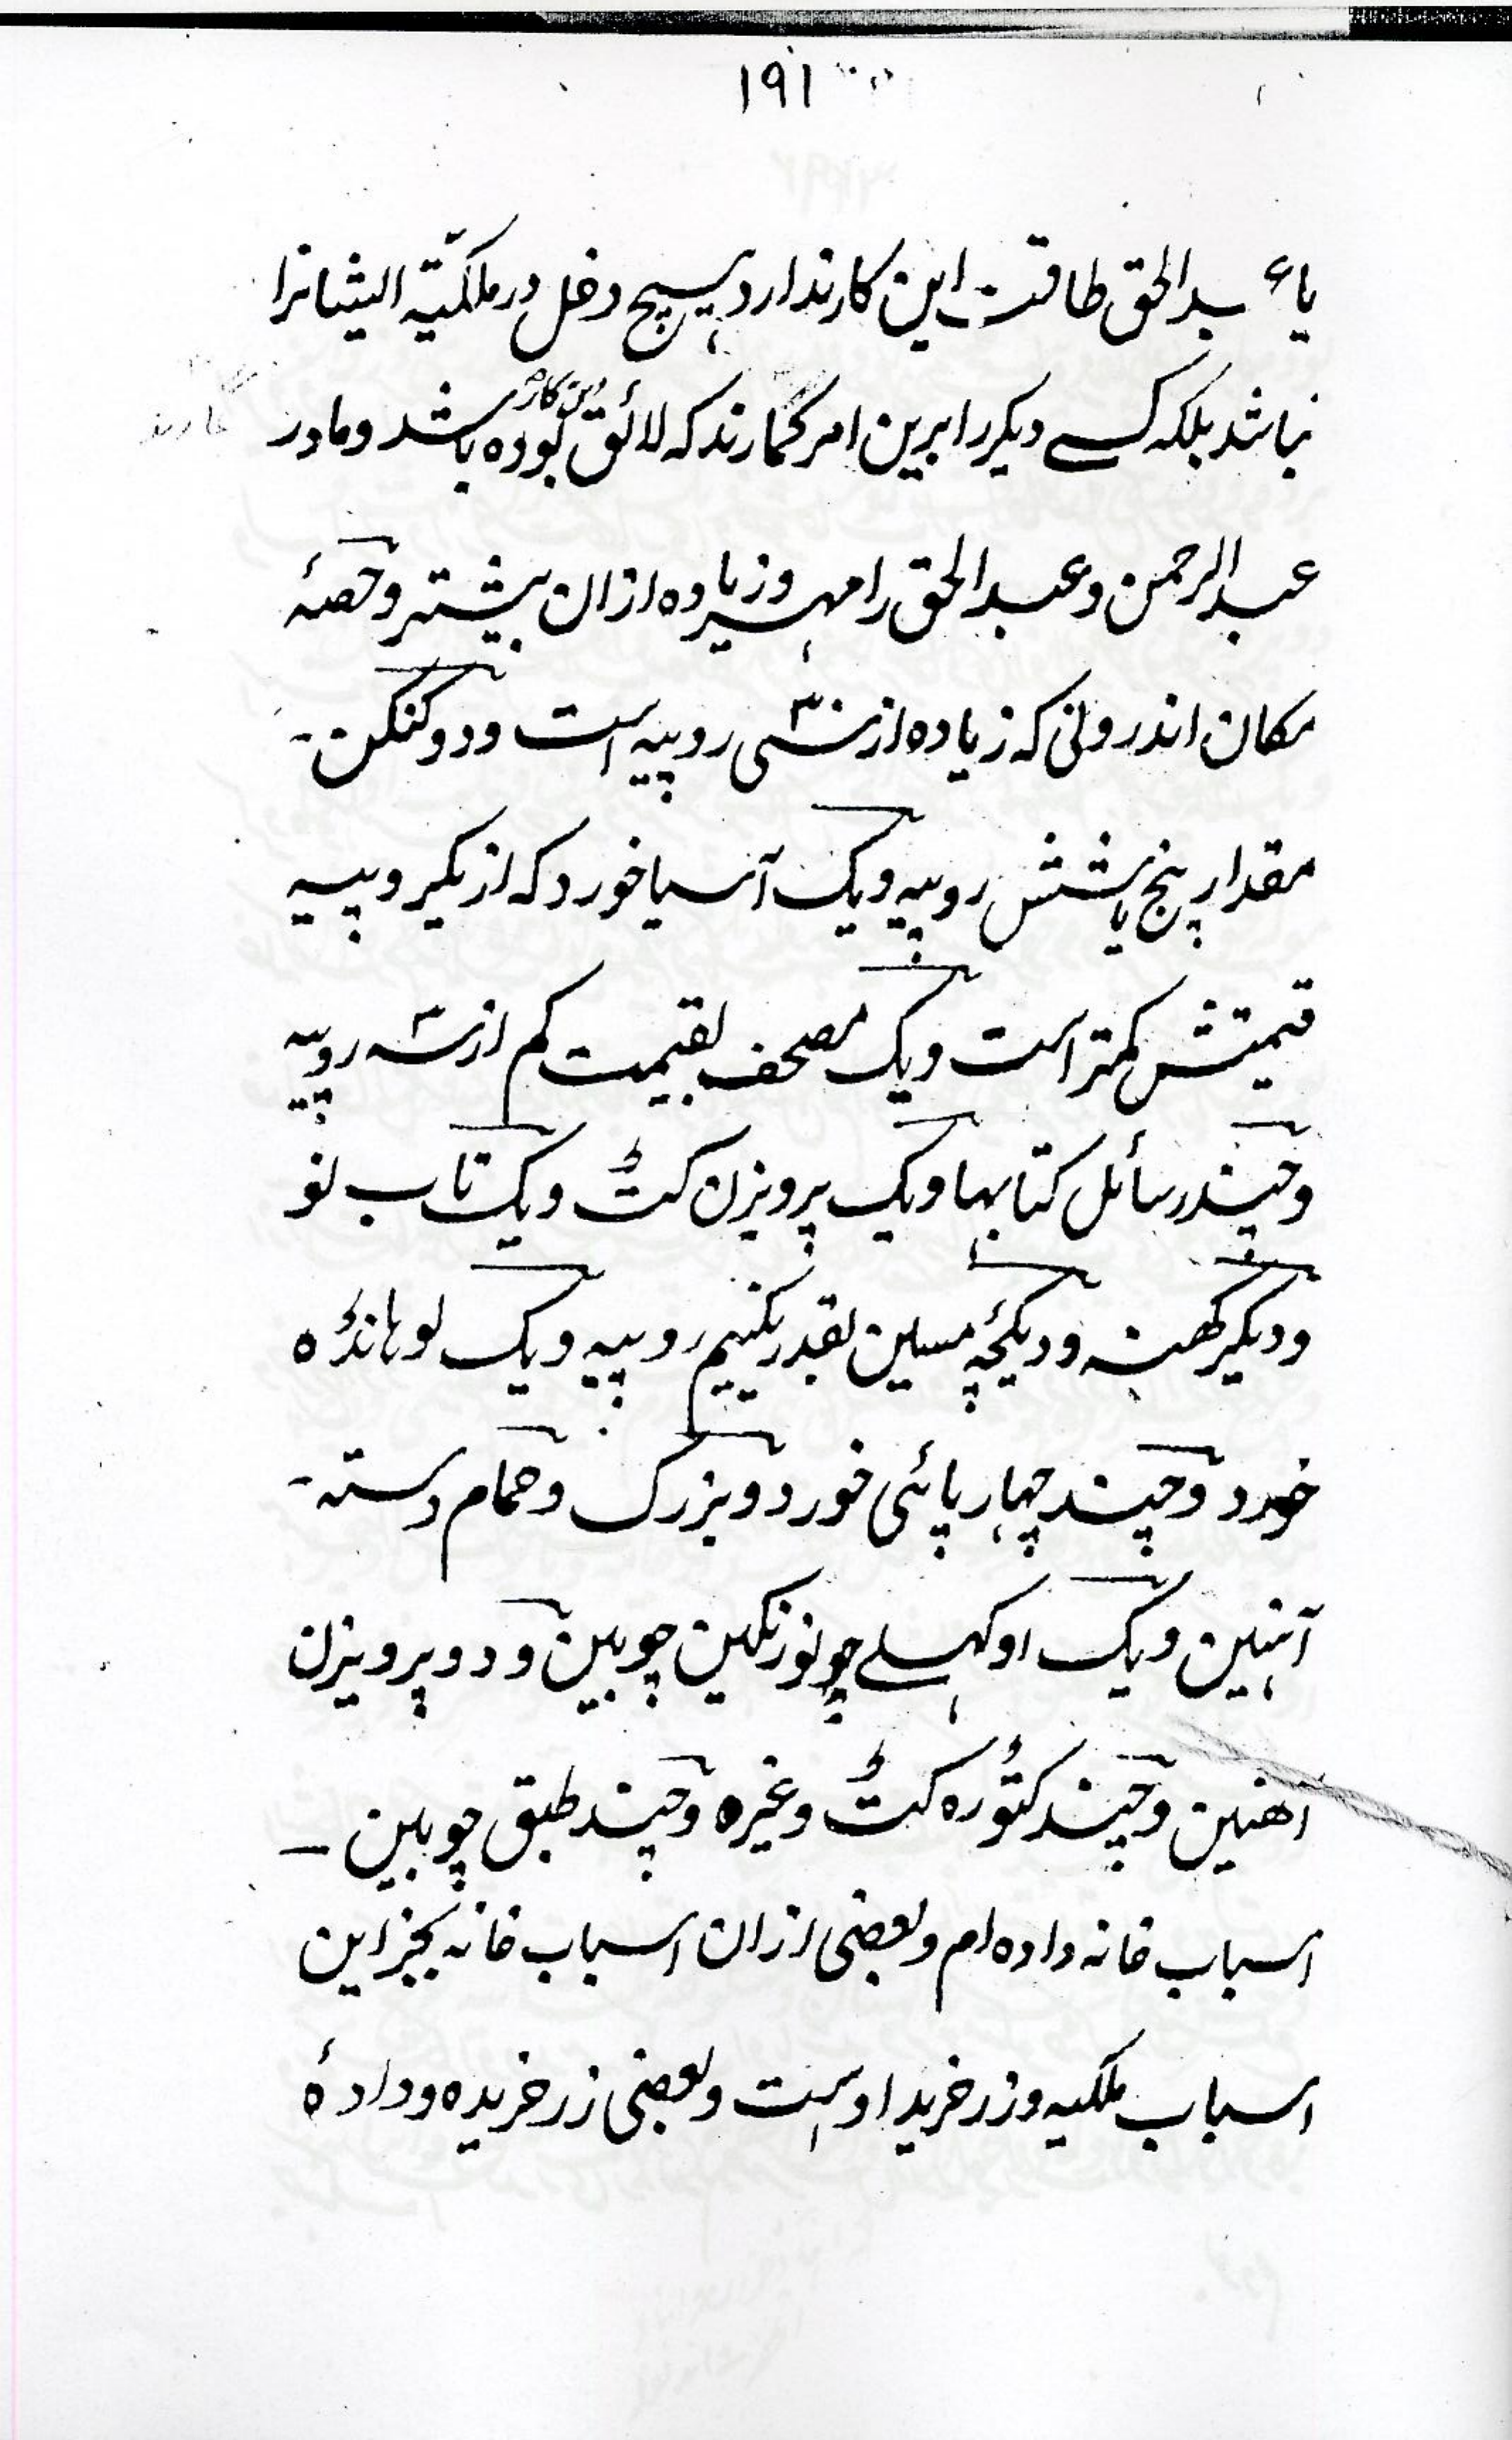 ۱۹۱
یا عبدالحق طاقت این کار ندارد ہیچ دخل در ملکیّتہ ایشانرا
نباشد بلکہ کسے دیکر را برین امر کمارند کہ لائق این کار بودہ باشد و مادر
عبدالرحمن و عبدالحق را مہر و زیادہ ازان بیشتر و حصۂ
مکان اندرونی کہ زیادہ از سی روپیہ است و دو کنکن
مقدار پنج یا شش روپیہ و یک آسیا خورد کہ از یکروپیہ
قیمتش کمتر است و یک مصحف بقیمت کم از سہ روپیہ
و چند رسائل کتابہا و یک پرویزن کٹ و یک تاب نو
و دیکر کھنہ و دیکچۂ مسین بقدر یکنیم روپیہ و یک لوہانڈہ
خورد و چند چہارپائی خورد و بزرک و حمام دستہ
آہنین و یک اوکہلے چوبین و دو پرویزن
آھنین و چند کٹورہ کٹ وغیرہ و چند طبق چوبین
اسباب خانہ دادہ ام و بعضی ازان اسباب خانہ بجز این
اسباب ملکیہ و زر خرید او است و بعضی زر خریدہ و دادۂ